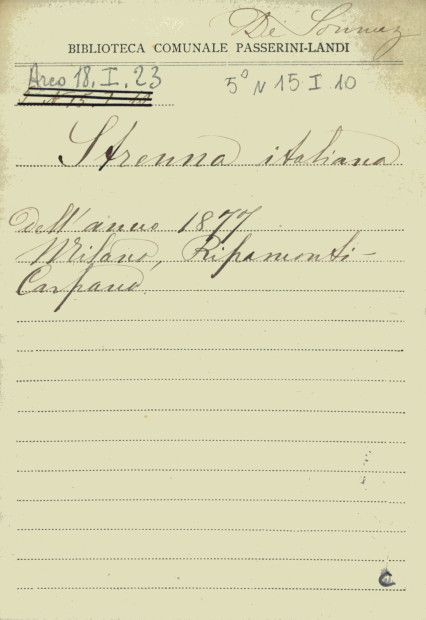 De
BIBLIOTECA COMUNALE PASSERINI-LANDI
Arco 18. I. 23
5° N 15 I 10
Strenna italiana
dell'anno 1877
Milano, Ripamonti-
Carpano.